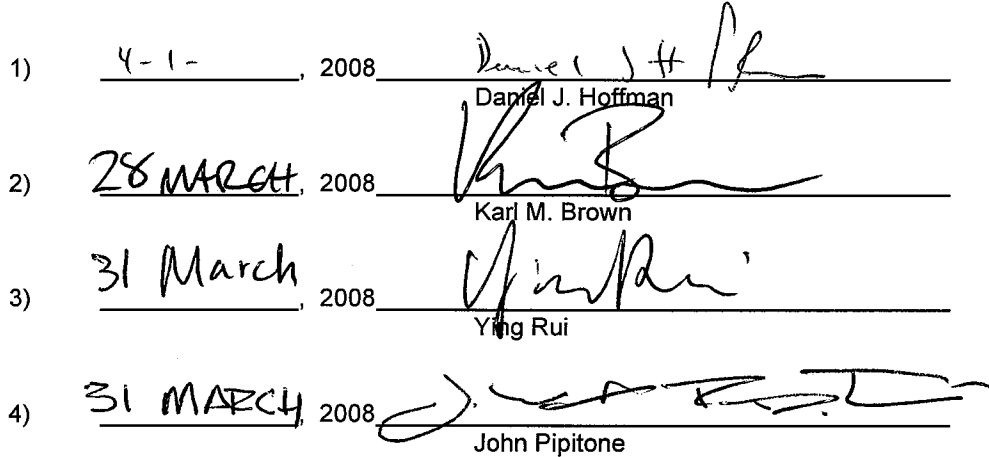 1) 4-1-, 2008 Daniel J Hoffman
Daniel J. Hoffman
2) 28 MARCH, 2008
Karl M. Brown
3) 31 March, 2008 Ying Rui
Ying Rui
4) 31 MARCH, 2008
John Pipitone